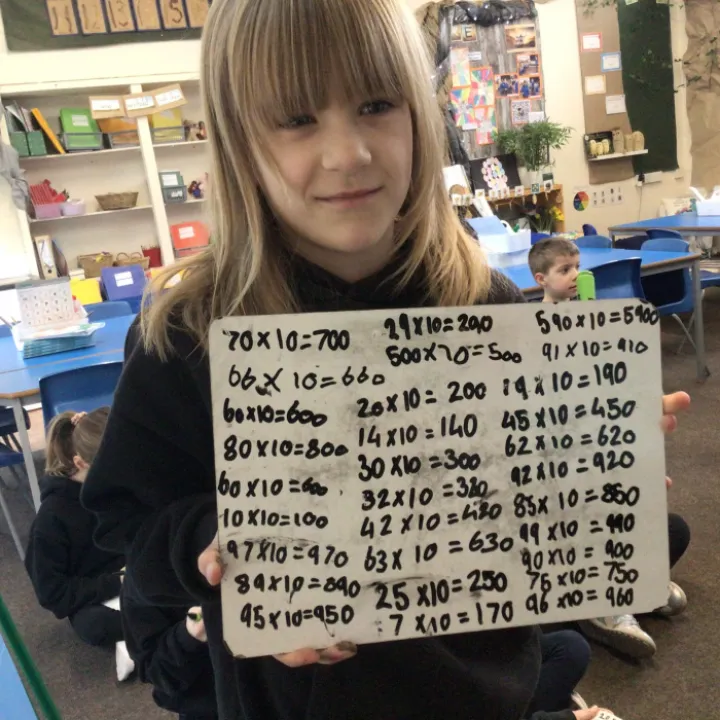 70 x 10=700
66 x 10=660
60x10=600
80x10=800
60x10=600
10x10=100
97x10=970
89x10=890
95x10=950
29x10=290
500x70=500
20x10=200
14x10=140
30x10=300
32x10=320
42x10=420
63x10=630
25x10=250
7x10=170
590x10=5900
91x10=910
19x10=190
45x10=450
62x10=620
92x10=920
85x10=850
99x10=990
90x10=900
75x10=750
96x10=960